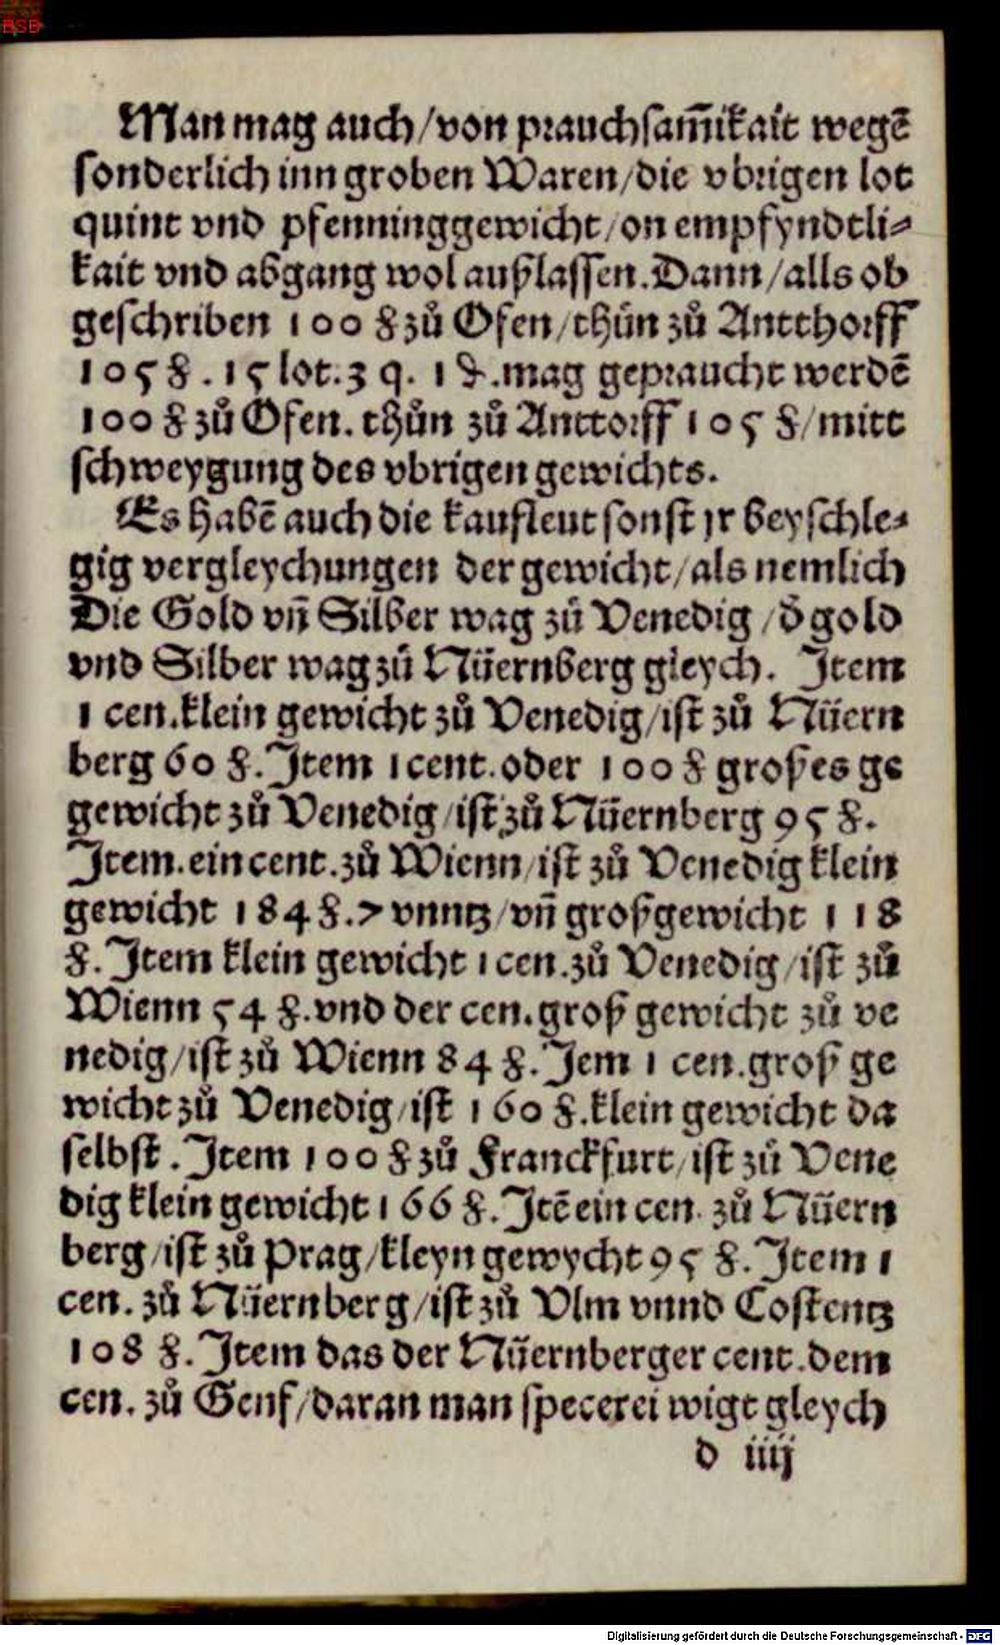 BSB
Man mag auch/von prauchsam̄ikait wegē
sonderlich inn groben Waren/die vbrigen lot
quint vnd pfenninggewicht/on empfyndtli⸗
kait vnd abgang wol außlassen.Dann/alls ob
geschriben 100 ℔ zů Ofen/thůn zů Antthorff
105 ℔. 15 lot.3 q. 1 ₰.mag gepraucht werdē
100 ℔ zů Ofen. thůn zů Anttorff 105 ℔/mitt
schweygung des vbrigen gewichts.
Es habē auch die kaufleut sonst jr beyschle⸗
gig vergleychungen der gewicht/als nemlich
Die Gold vn̄ Silber wag zů Venedig/d̄ gold
vnd Silber wag zů Nüernberg gleych. Item
1 cen.klein gewicht zů Venedig/ist zů Nüern
berg 60 ℔. Item 1 cent. oder 100 ℔ großes ge
gewicht zů Venedig/ist zů Nüernberg 95 ℔.
Item. ein cent. zů Wienn/ist zů Venedig klein
gewicht 184 ℔. 7 vnntz/vn̄ großgewicht 118
℔. Item klein gewicht 1 cen. zů Venedig/ist zů
Wienn 54 ℔. vnd der cen. groß gewicht zů ve
nedig/ist zů Wienn 84 ℔. Jem 1 cen. groß ge
wicht zů Venedig/ist 160 ℔. klein gewicht da
selbst. Item 100 ℔ zů Franckfurt/ist zů Vene
dig klein gewicht 166 ℔. Itē ein cen. zů Nüern
berg/ist zů Prag/kleyn gewycht 95 ℔. Item 1
cen. zů Nüernberg/ist zů Vlm vnnd Costentz
108 ℔. Item das der Nüernberger cent. dem
cen. zů Genf/daran man specerei wigt gleych
d iiij
Digitalisierung gefördert durch die Deutsche Forschungsgemeinschaft - DFG